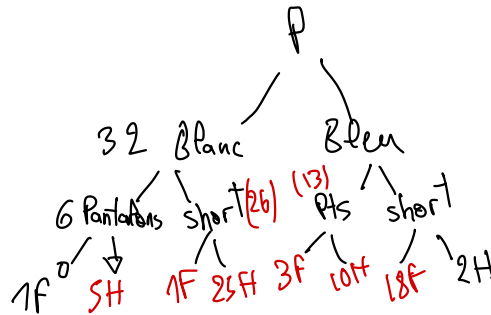 P
32 Blanc Bleu
6 Pantalons short (26) (13) Pts short
1F 5H 1F 25H 3F 10H 18F 2H